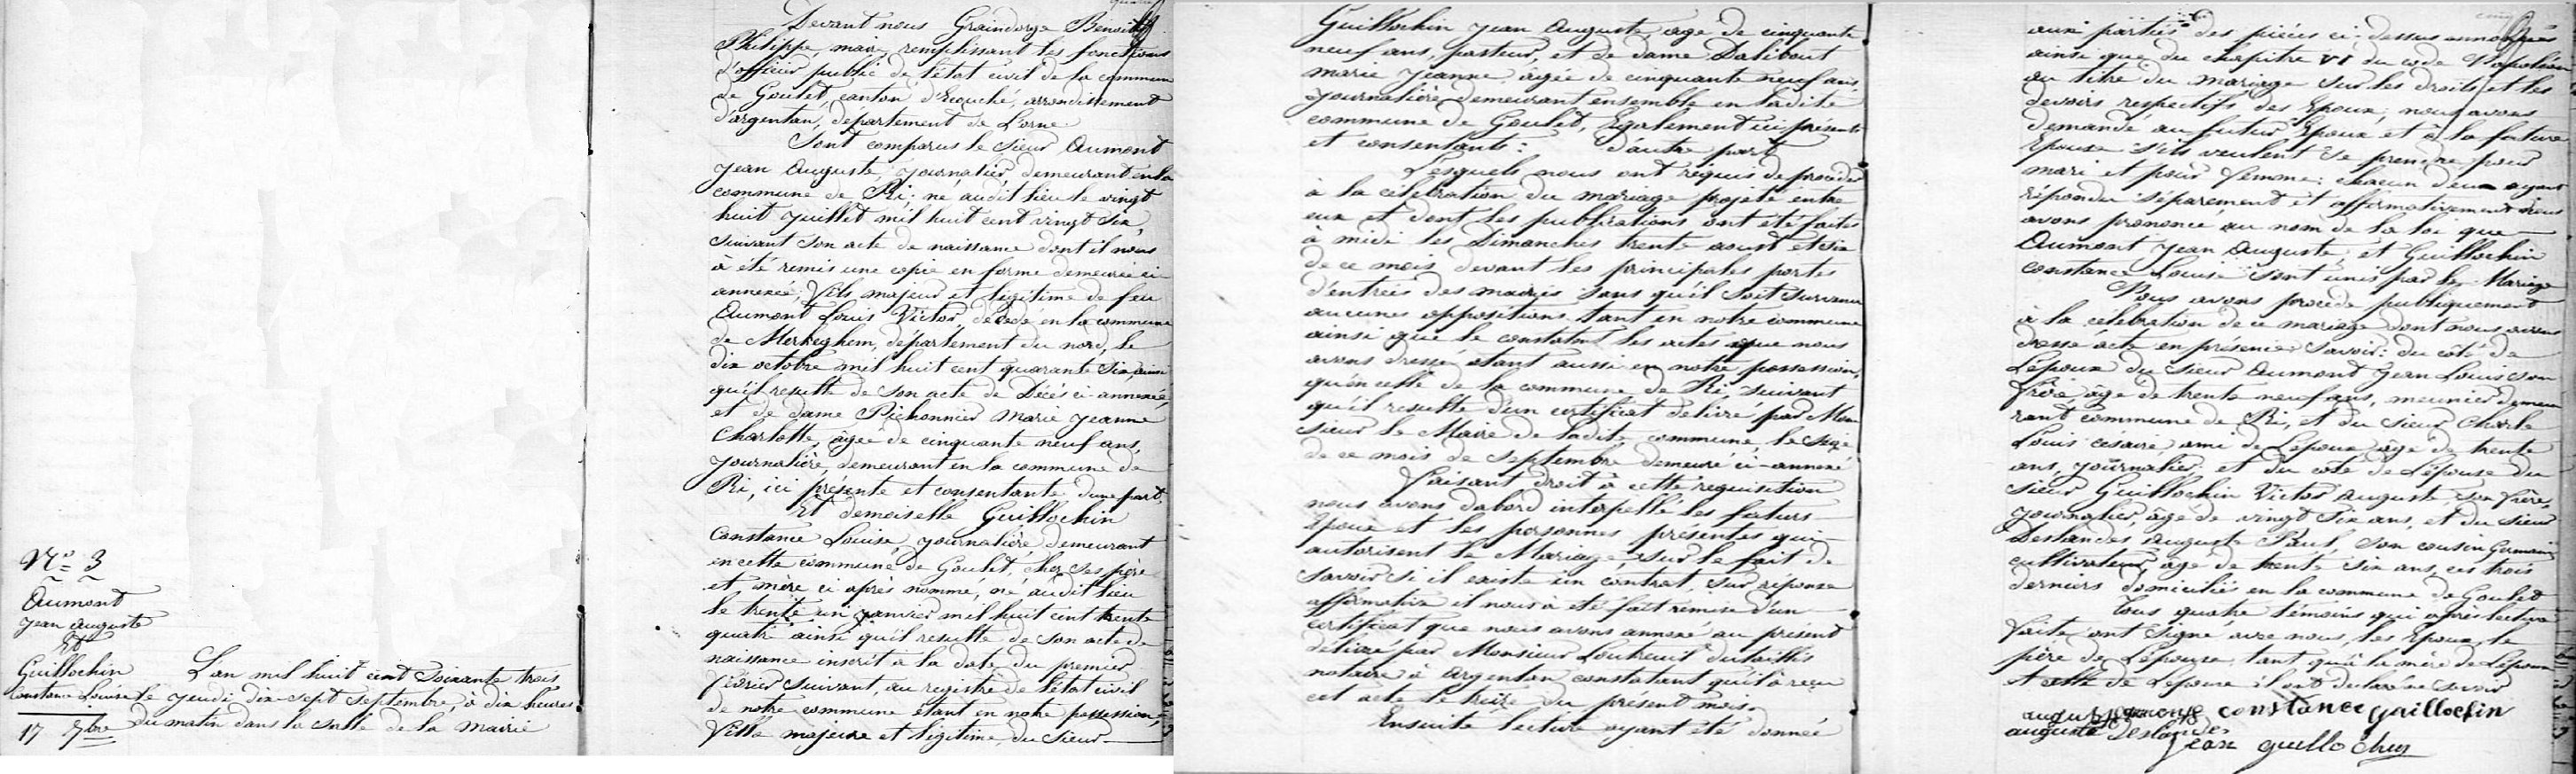 N° 3
Aumont
Jean Auguste
Et
Guillochin
Constance Louise
17 7bre
L'an mil huit cent soixante trois
le jeudi dix-sept septembre, à dix heures
du matin dans la salle de la mairie
Devant nous Graindorge Benoit
Philippe, maire, remplissant les fonctions
d'officier public de l'état civil de la commune
de Goulet, canton d'Ecouché, arrondissement
d'argentan, département de L'orne
Sont comparus le sieur Aumont
Jean Auguste, journalier, demeurant en la
commune de Ri; né audit lieu le vingt
huit juillet mil huit cent vingt six,
suivant son acte de naissance dont il nous
à été remis une copie en forme demeurée ci
annexée, fils majeur et légitime de feu
Aumont Louis Victor, décédé en la commune
de Merkeghem, département du nord, le
dix octobre mil huit cent quarante six, ainsi
qu'il resulte de son acte de Décès ci-annexé,
et de dame Pichonnier Marie Jeanne
Charlotte, âgée de cinquante neuf ans,
journalière, demeurant en la commune de
Ri, ici présente et consentante d'une part,
Et demoiselle Guillochin
Constance Louise, journalière demeurant
en cette commune de Goulet, chez ses père
et mère ci après nommé, né audit lieu
le trente un janvier mil huit cent trente
quatre ainsi qu'il resulte de son acte de
naissance inscrit à la date du premier
février suivant, au registre de l'état civil
de notre commune étant en notre possession,
Fille majeure et légitime, du Sieur
Guillochin Jean Auguste âgé de cinquante
neuf ans, pasteur, et de dame Dalibout
marie Jeanne âgée de cinquante neuf ans,
journalière demeurant ensemble en ladite
commune de Goulet, Egalement ici présents
et consentants: d'autre part
Lesquels nous ont requis de procéder
à la célébration du mariage projeté entre
eux et dont les publications ont été faites
à midi les Dimanches trente aoust et six
de ce mois devant les principales portes
d'entrées des mairies sans qu'il soit survenu
aucunes oppositions tant en notre commune
ainsi que le constatent les actes que nous
avons dressé étant aussi en notre possession,
qu'en celle de la commune de Ri, suivant
qu'il resulte d'un certificat délivré par Mon
sieur le Maire de ladite commune, le seize
de ce mois de septembre demeuré ci-annexé
Faisant droit à cette requisition
nous avons dabord interpellé les futurs
Epoux et les personnes présentes qui
autorisent le Mariage sur le fait de
savoir si il existe un contrat, sur réponse
affirmative il nous à été fait remise d'un
certificat que nous avons annexé au présent
délivré par Monsieur Loutreuil dutaillis
notaire à Argentan constatant qu'il à reçu
cet acte le treize du présent mois.
Ensuite lecture ayant été donnée
aux parties des pièces ci-dessus énoncées
ainsi que du chapitre VI du code Napoléon
au titre du mariage sur les droits et les
devoirs respectifs des Epoux, nous avons
demandé au futur Epoux et à la future
Epouse s'ils veulent se prendre pour
mari et pour femme: chacun d'eux ayant
répondu séparément et affirmativement nous
avons prononcé au nom de la loi que
Aumont Jean Auguste, et Guillochin
constance Louise sont unis par le Mariage
Nous avons procédé publiquement
à la célébration de ce mariage dont nous avons
dressé acte en présence Savoir: du côté de
L'époux du sieur Aumont Jean Louis son
frère âgé de trente neuf ans, meunier demeu
rant commune de Ri, et du sieur Charle
Louis césaire, ami de L'époux âgé de trente
ans, journalier, et du côté de L'épouse du
sieur Guillochin Victor Auguste, son frère,
journalier, âgé de vingt six ans, et du sieur
Deslandes Auguste Paul, son cousin Germain
cultivateur, âgé de trente six ans, ces trois
derniers domiciliés en la commune de Goulet
tous quatre témoins qui après lecture
faite ont signé avec nous, les Epoux, le
père de L'épouse, tant qu'à la mère de L'époux
et celle de L'épouse il ont déclaré ne savoir
constance guillochin
auguste Deslandes
jean guillochin